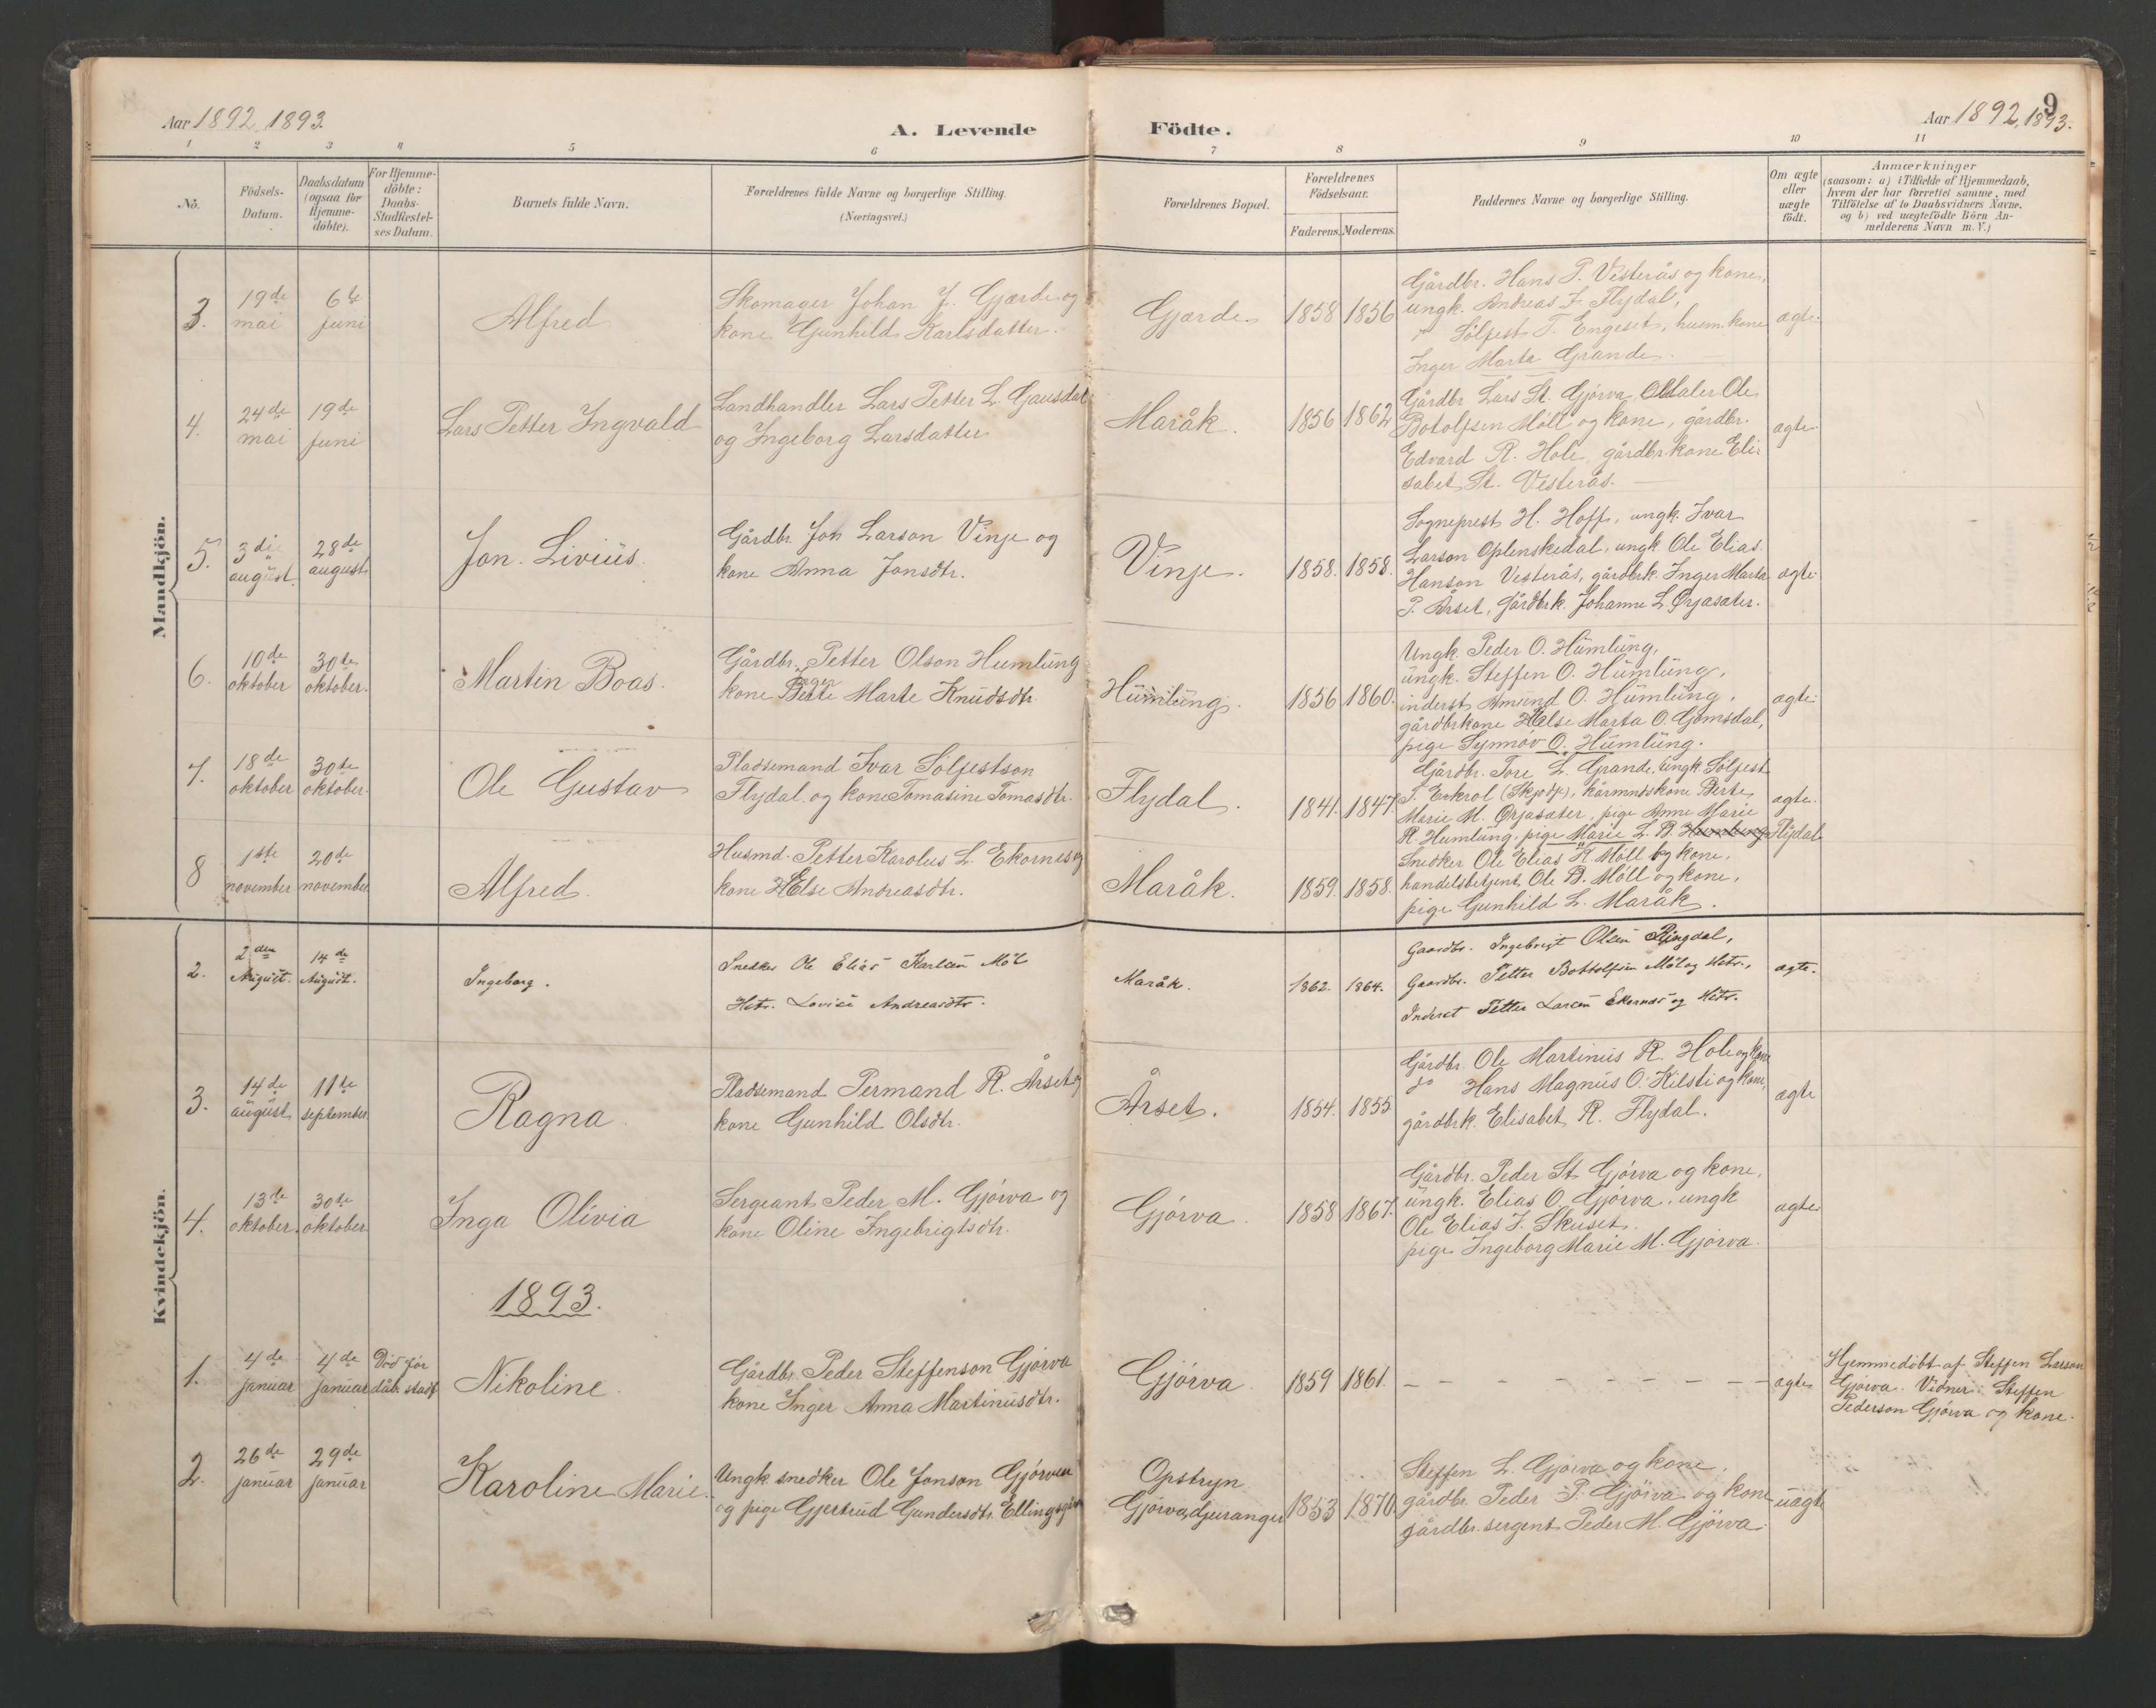 Aar 1892, 1893.
A. Levende Födte.
9
Aar 1892, 1893.
1 2 3 4 5 6 7 8 9 10 11
No.
Födsels-
Datum.
Daabsdatum
(ogsaa for
Hjemme-
döbte).
For Hjemme-
döbte:
Daabs-
Stadfæstel-
ses Datum.
Barnets fulde Navn.
Forældrenes fulde Navne og borgerlige Stilling.
(Næringsvei.)
Forældrenes Bopæl.
Forældrenes
Födselsaar.
Faderens. Moderens.
Faddernes Navne og borgerlige Stilling.
Om ægte
eller
uægte
födt.
Anmærkninger
(saasom: a) i Tilfælde af Hjemmedaab,
hvem der har forrettet samme, med
Tilföielse af to Daabsvidners Navne,
og b) ved uægtefödte Börn An-
melderens Navn m. V.)
Mandkjön.
3.
19de
mai
6te
juni
Alfred
Skomager Johan J. Gjærde og
kone Gunhild Karlsdatter.
Gjærde
1858 1856
Gårdbr. Hans P. Vesterås og kone,
ungk. Andreas J. Flydal,
" Sölfest T. Engeset, husm. kone
Inger Marta Grande.
ægte.
4.
24de
mai
19de
juni
Lars Petter Ingvald
Landhandler Lars Petter L. Gausdal
og Ingeborg Larsdatter
Maråk.
1856 1862
Gårdbr Lars St. Gjörva, Ole
Botolfsen Möll og kone, gårdbr.
Edvard R. Hole, gårdbr.kone Eli-
sabet St. Vesterås.
ægte.
5.
3die
august.
28de
august.
Jon Livius.
Gårdbr. Joh Larson Vinje og
kone Anna Jonsdtr.
Vinje.
1858. 1858.
Sogneprest H. Hoff, ungk. Ivar
Larson Oplenskedal, ungk. Ole Elias
Hanson Vesterås, gårdbrk. Inger Marta
P. Årset, Gårdbrk. Johanne L. Örjasæter.
ægte.
6.
10de
oktober
30te
oktober.
Martin Boas.
Gårdbr. Petter Olson Humlung
Inger
kone Berte Marte Knudsdtr
Humlung.
1856 1860.
Ungk. Peder O. Humlung,
ungk. Steffen O. Humlung,
inderst Amund O. Humlung,
gårdbrkone Else Marta O. Gomsdal,
pige Synnöv O. Humlung.
ægte.
7.
18de
oktober
30te
oktober.
Ole Gustav
Pladsemand Ivar Sölfestson
Flydal og kone Tomasine Tomasdtr.
Flydal.
1841. 1847.
Gårdbr. Tore L. Grande, ungk. Sölfest
Marie M. Örjasæter, pige Anne Marie
R. Humlung, pige Marie L. R. Humlung Flydal
ægte.
8
1ste
november
20de
november
Alfred.
Husmd. Petter Karolus L. Ekornes og
kone Else Andreasdtr.
Maråk.
1859. 1858.
Snedker Ole Elias K. Möll og kone,
handelsbetjent Ole B. Möll og kone,
pige Gunhild L. Maråk.
Kvindekjön.
2.
2den
August.
14de
August.
Ingeborg.
Snedker Ole Elias Karlsen Möl
Hstr. Lovise Andreasdtr.
Maråk.
1862. 1864.
Gaardbr. Ingebrigt Olsen Ringdal,
Gaardbr. Petter Bottolfsen Möl og Hstr.,
Inderst Petter Larsen Ekornæs og Hstr.
ægte.
3.
14de
august
11te
september.
Ragna.
Pladsemand Permand R. Årset og
kone Gunhild Olsdtr.
Årset.
1854. 1855
Gårdbr. Ole Martinus R. Hole og kone
do Hans Magnus O. Kilsti og kone,
gårdbrk. Elisabet R. Flydal.
ægte
4.
13de
oktober.
30te
oktober
Inga Olivia
Sergeant Peder M. Gjörva og
kone Oline Ingebrigtsdtr.
Gjörva.
1858 1867.
Gårdbr. Peder St Gjörva og kone,
ungk. Elias O. Gjörva, ungk
Ole Elias J. Skuset,
pige Ingeborg Marie M. Gjörva.
ægte
1893.
1.
4de
januar
4de
januar
Död för
dåb. stadf
Nikoline.
Gårdbr. Peder Steffenson Gjörva
kone Inger Anna Martinusdtr.
Gjörva.
1859 1861.
– – – – – – – – –
ægte
Hjemmedöbt af Steffen Larson
Gjörva. Vidner: Steffen
Pederson Gjörva og kone.
2.
26de
januar
29de
januar
Karoline Marie.
Ungk. snedker Ole Jonson Gjörven
og pige Gjertrud Gundersdtr. Ellingsgård
Opstryn
Gjörva,
1853 1870.
Steffen L. Gjörva og kone,
gårdbr. Peder P. Gjörva og kone
gårdbr. sergent Peder M. Gjörva.
uægte